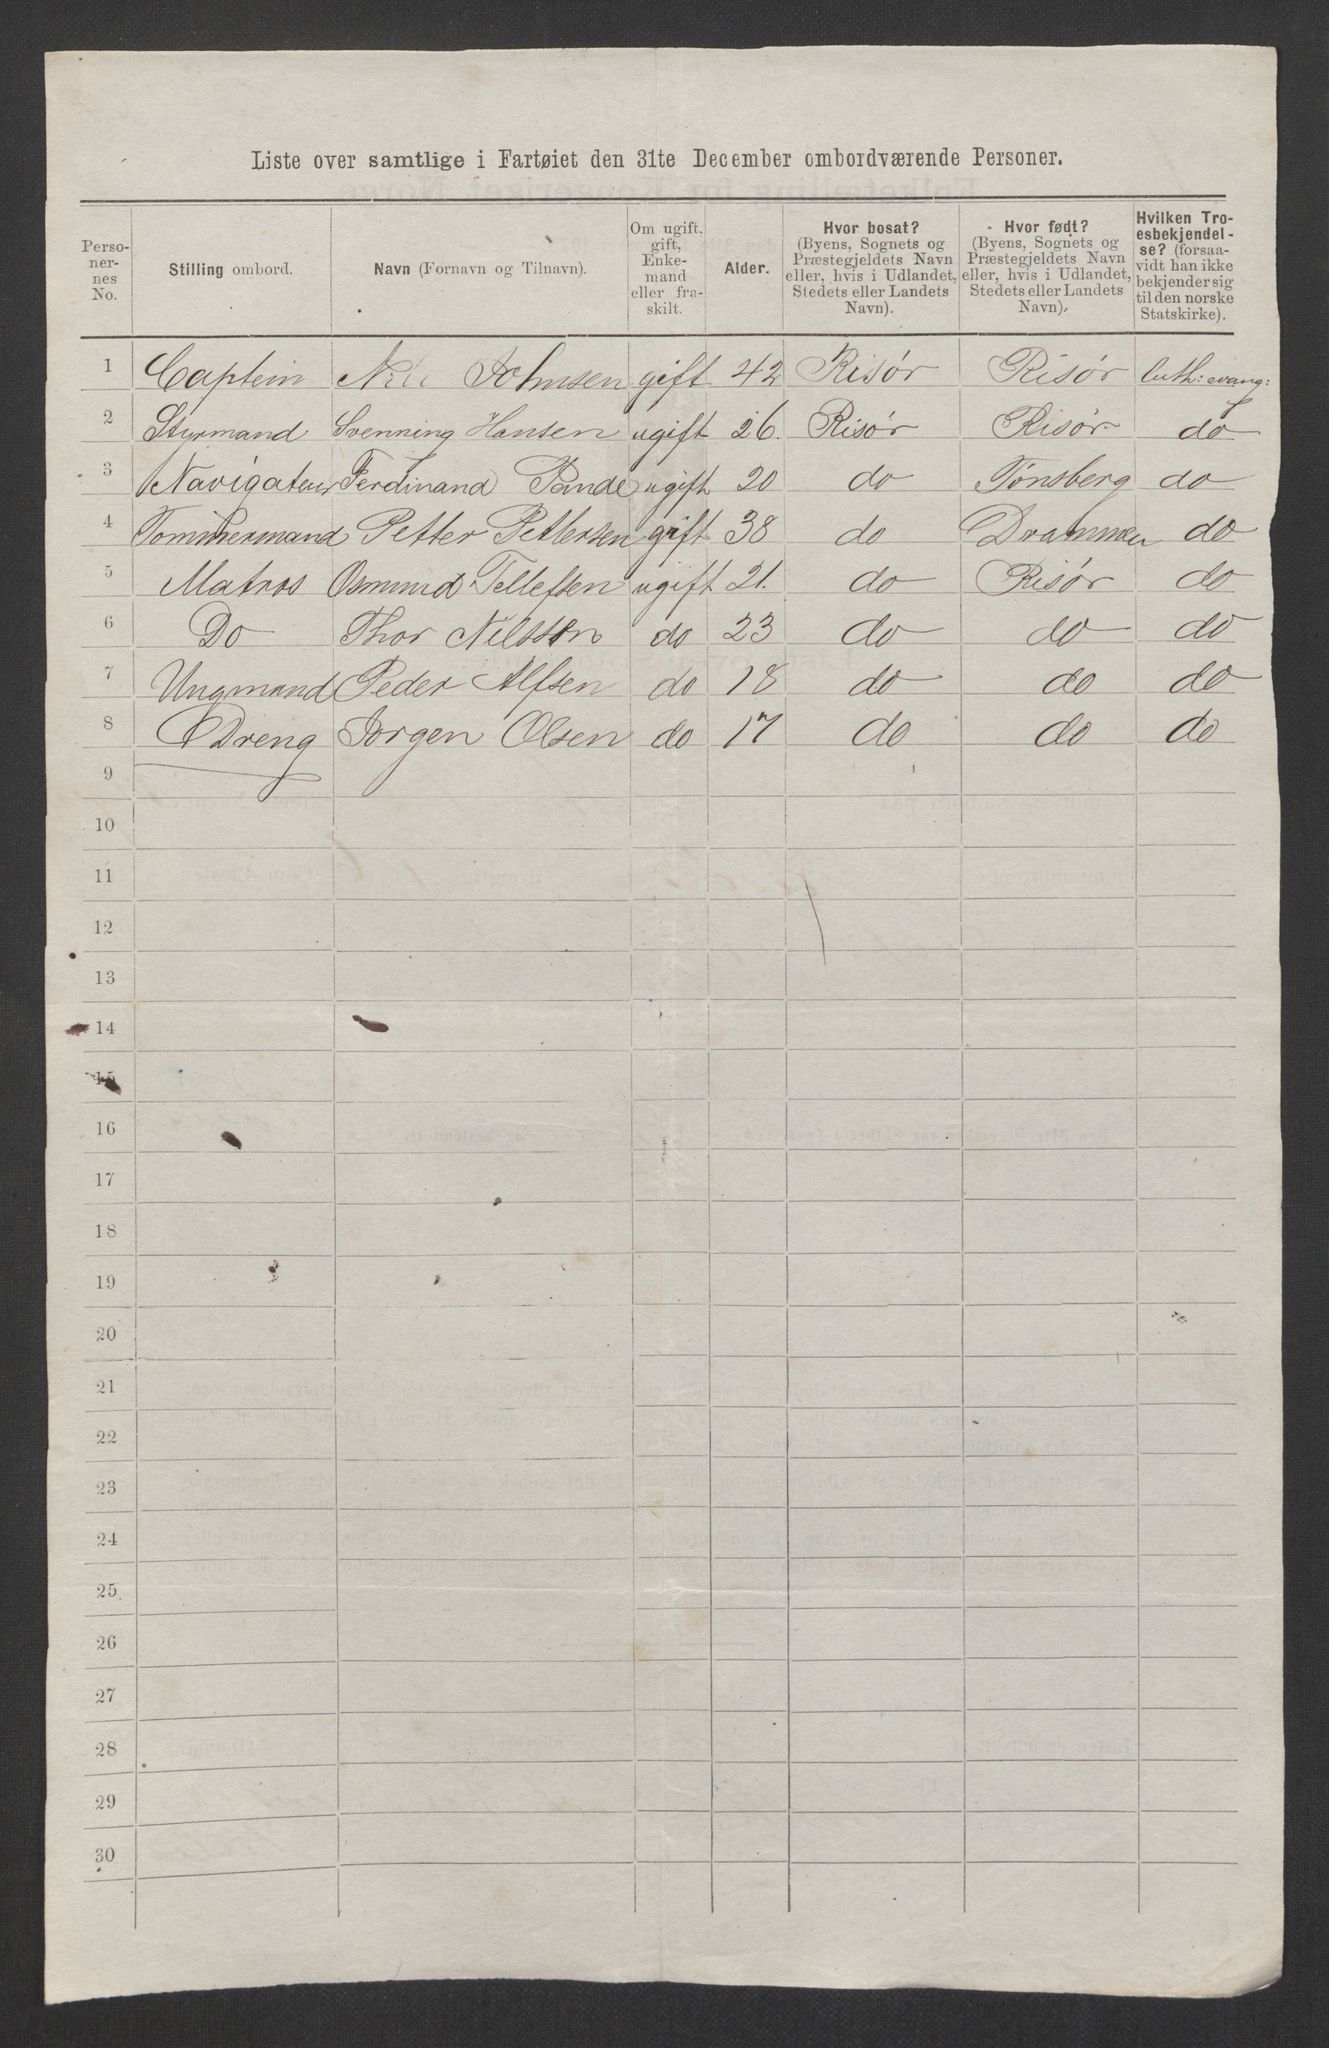 Liste over samtlige i Fartøiet den 31te December ombordværende Personer.
Perso-
ner-
nes
No.
Stilling ombord.
Navn (Fornavn og Tilnavn).
Om ugift,
gift,
Enke-
mand
eller fra-
skilt.
Alder.
Hvor bosat?
(Byens, Sognets og
Præstegjeldets Navn
eller, hvis i Udlandet,
Stedets eller Landets
Navn).
Hvor født?
(Byens, Sognets og
Præstegjeldets Navn
eller, hvis i Udlandet,
Stedets eller Landets
Navn).
Hvilken Tro-
esbekjendel-
se? (forsaa-
vidt han ikke
bekjender sig
til den norske
Statskirke).
1 Captein Nils Johnsen gift 42 Risør Risør luth: evang:
2 Styrmand Svenning Hansen ugift 26. Risør Risør do
3 Navigateur Ferdinand ugift 20 do Tønsberg do
4 Tommermand Petter Pettersen gift 38 do Drammen do
5 Matros Osmund Tellefsen ugift 21. do Risør do
6 Do Thor Nilssen do 23 do do do
7 Ungmand Peder Alfsen do 18 do do do
8 Dreng Jorgen Olsen do 17 do do do
9
10
11
12
13
14
15
16
17
18
19
20
21
22
23
24
25
26
27
28
29
30